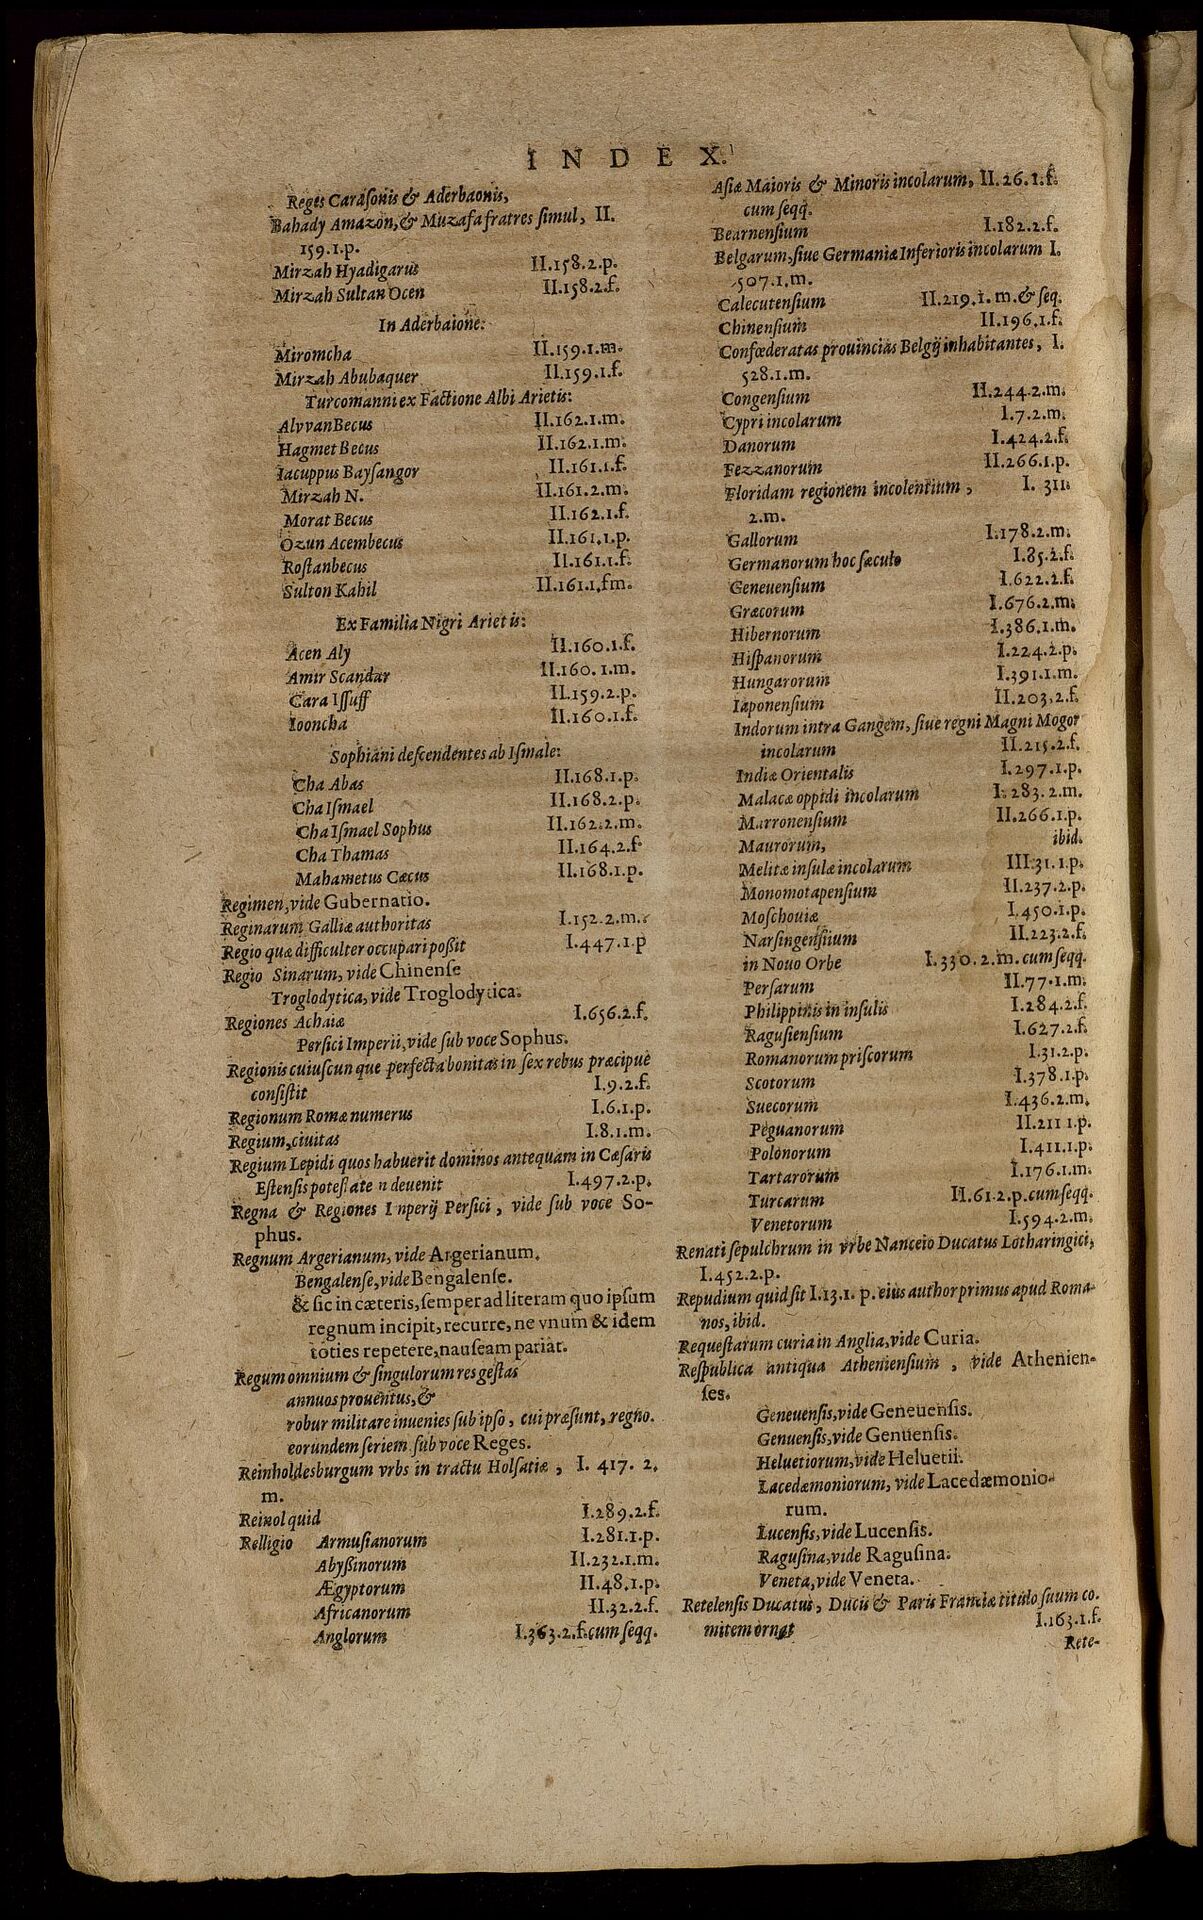 INDEX.
Reges Carasonis & Aderbaonis,
Bahady Amazon, & Muzafa fratres simul, II.
159.1.p.
Mirzah Hyadigarus II.158.2.p.
Mirzah Sultan Ocen II.158.2.f.
In Aderbaione:
Miromcha II.159.1.m.
Mirzah Abubaquer II.159.1.f.
Turcomanni ex Factione Albi Arietis:
Alvvan Becus II.162.1.m.
Hagmet Becus II.162.1.m.
Iacuppus Baysangor II.161.1.f.
Mirzah N. II.161.2.m.
Morat Becus II.162.1.f.
Ozun Acembecus II.161.1.p.
Rostanbecus II.161.1.f.
Sulton Kahil II.161.1.fm.
Ex Familia Nigri Arietis:
Acen Aly II.160.1.f.
Amir Scandar II.160.1.m.
Cara Issuff II.159.2.p.
Iooncha II.160.1.f.
Sophiani descendentes ab Ismale:
Cha Abas II.168.1.p.
Cha Ismael II.168.2.p.
Cha Ismael Sophus II.162.2.m.
Cha Thamas II.164.2.f
Mahametus Cæcus II.168.1.p.
Regimen, vide Gubernatio.
Reginarum Galliæ authoritas I.152.2.m.
Regio quæ difficulter occupari poßit I.447.1.p
Regio Sinarum, vide Chinense
Troglodytica, vide Troglodytica.
Regiones Achaiæ I.656.2.f.
Persici Imperii, vide sub voce Sophus.
Regionis cuiuscunque perfecta bonitas in sex rebus præcipuè
consistit I.9.2.f.
Regionum Romæ numerus I.6.1.p.
Regium, ciuitas I.8.1.m.
Regium Lepidi quos habuerit dominos antequam in Cæsaris
Estensis potestate n deuenit I.497.2.p.
Regna & Regiones Inperij Persici, vide sub voce So-
phus.
Regnum Argerianum, vide Argerianum.
Bengalense, vide Bengalense.
& sic in cæteris, semper ad literam quo ipsum
regnum incipit, recurre, ne vnum & idem
toties repetere, nauseam pariat.
Regum omnium & singulorum res gestas
annuos prouentus, &
robur militare inuenies sub ipso, cui præsunt, regno.
eorundem seriem sub voce Reges.
Reinholdesburgum vrbs in tractu Holsatiæ, I. 417. 2.
m.
Reinol quid I.289.2.f.
Relligio Armusianorum I.281.1.p.
Abyßinorum II.232.1.m.
Ægyptorum II.48.1.p.
Africanorum II.32.2.f.
Anglorum I.363.2.f.cum seqq.
Asiæ Maioris & Minoris incolarum, II.26.1.f.
cum seqq.
Bearnensium I.182.2.f.
Belgarum, siue Germaniæ Inferioris incolarum I.
507.1.m.
Calecutensium II.219.1.m.& seq.
Chinensium II.196.1.f.
Confœderatas prouincias Belgij inhabitantes, I.
528.1.m.
Congensium II.244.2.m.
Cypri incolarum I.7.2.m.
Danorum I.424.2.f.
Fezzanorum II.266.1.p.
Floridam regionem incolentium, I. 311.
2.m.
Gallorum I.178.2.m.
Germanorum hoc sæculo I.85.2.f.
Geneuensium I.622.2.f.
Græcorum I.676.2.m.
Hibernorum I.386.1.m.
Hispanorum I.224.2.p.
Hungarorum I.391.1.m.
Iaponensium II.203.2.f.
Indorum intra Gangem, siue regni Magni Mogor
incolarum II.215.2.f.
Indiæ Orientalis I.297.1.p.
Malacæ oppidi incolarum I.283.2.m.
Marronensium II.266.1.p.
Maurorum, ibid.
Melitæ insulæ incolarum III.31.1.p.
Monomotapensium II.237.2.p.
Moschouiæ I.450.1.p.
Narsingensiium II.223.2.f.
in Nouo Orbe I.330.2.m. cum seqq.
Persarum II.77.1.m.
Philippinis in insulis I.284.2.f.
Ragusiensium I.627.2.f.
Romanorum priscorum I.31.2.p.
Scotorum I.378.1.p.
Suecorum I.436.2.m.
Peguanorum II.211 1.p.
Polonorum I.411.1.p.
Tartarorum I.176.1.m.
Turcarum II.61.2.p.cum seqq.
Venetorum I.594.2.m.
Renati sepulchrum in vrbe Nanceio Ducatus Lotharingici,
I.452.2.p.
Repudium quid sit I.13.1. p. eius author primus apud Roma-
nos, ibid.
Requestarum curia in Anglia, vide Curia.
Respublica antiqua Atheniensium, vide Athenien-
ses.
Geneuensis, vide Geneuensis.
Genuensis, vide Genuensis.
Heluetiorum, vide Heluetii.
Lacedæmoniorum, vide Lacedæmonio-
rum.
Lucensis, vide Lucensis.
Ragusina, vide Ragusina.
Veneta, vide Veneta.
Retelensis Ducatus, Ducis & Paris Franciæ titulo suum co-
mitem ornat I.163.1.f.
Rete-